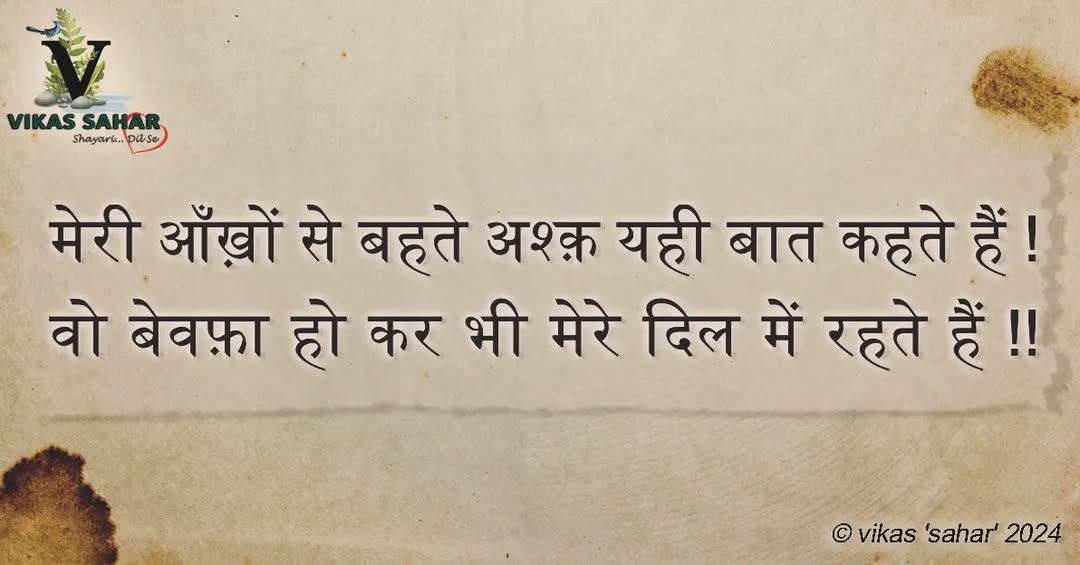 VIKAS SAHAR
Shayari... Dil Se
मेरी आँख़ों से बहते अश्क़ यही बात कहते हैं !
वो बेवफ़ा हो कर भी मेरे दिल में रहते हैं !!
© vikas 'sahar' 2024